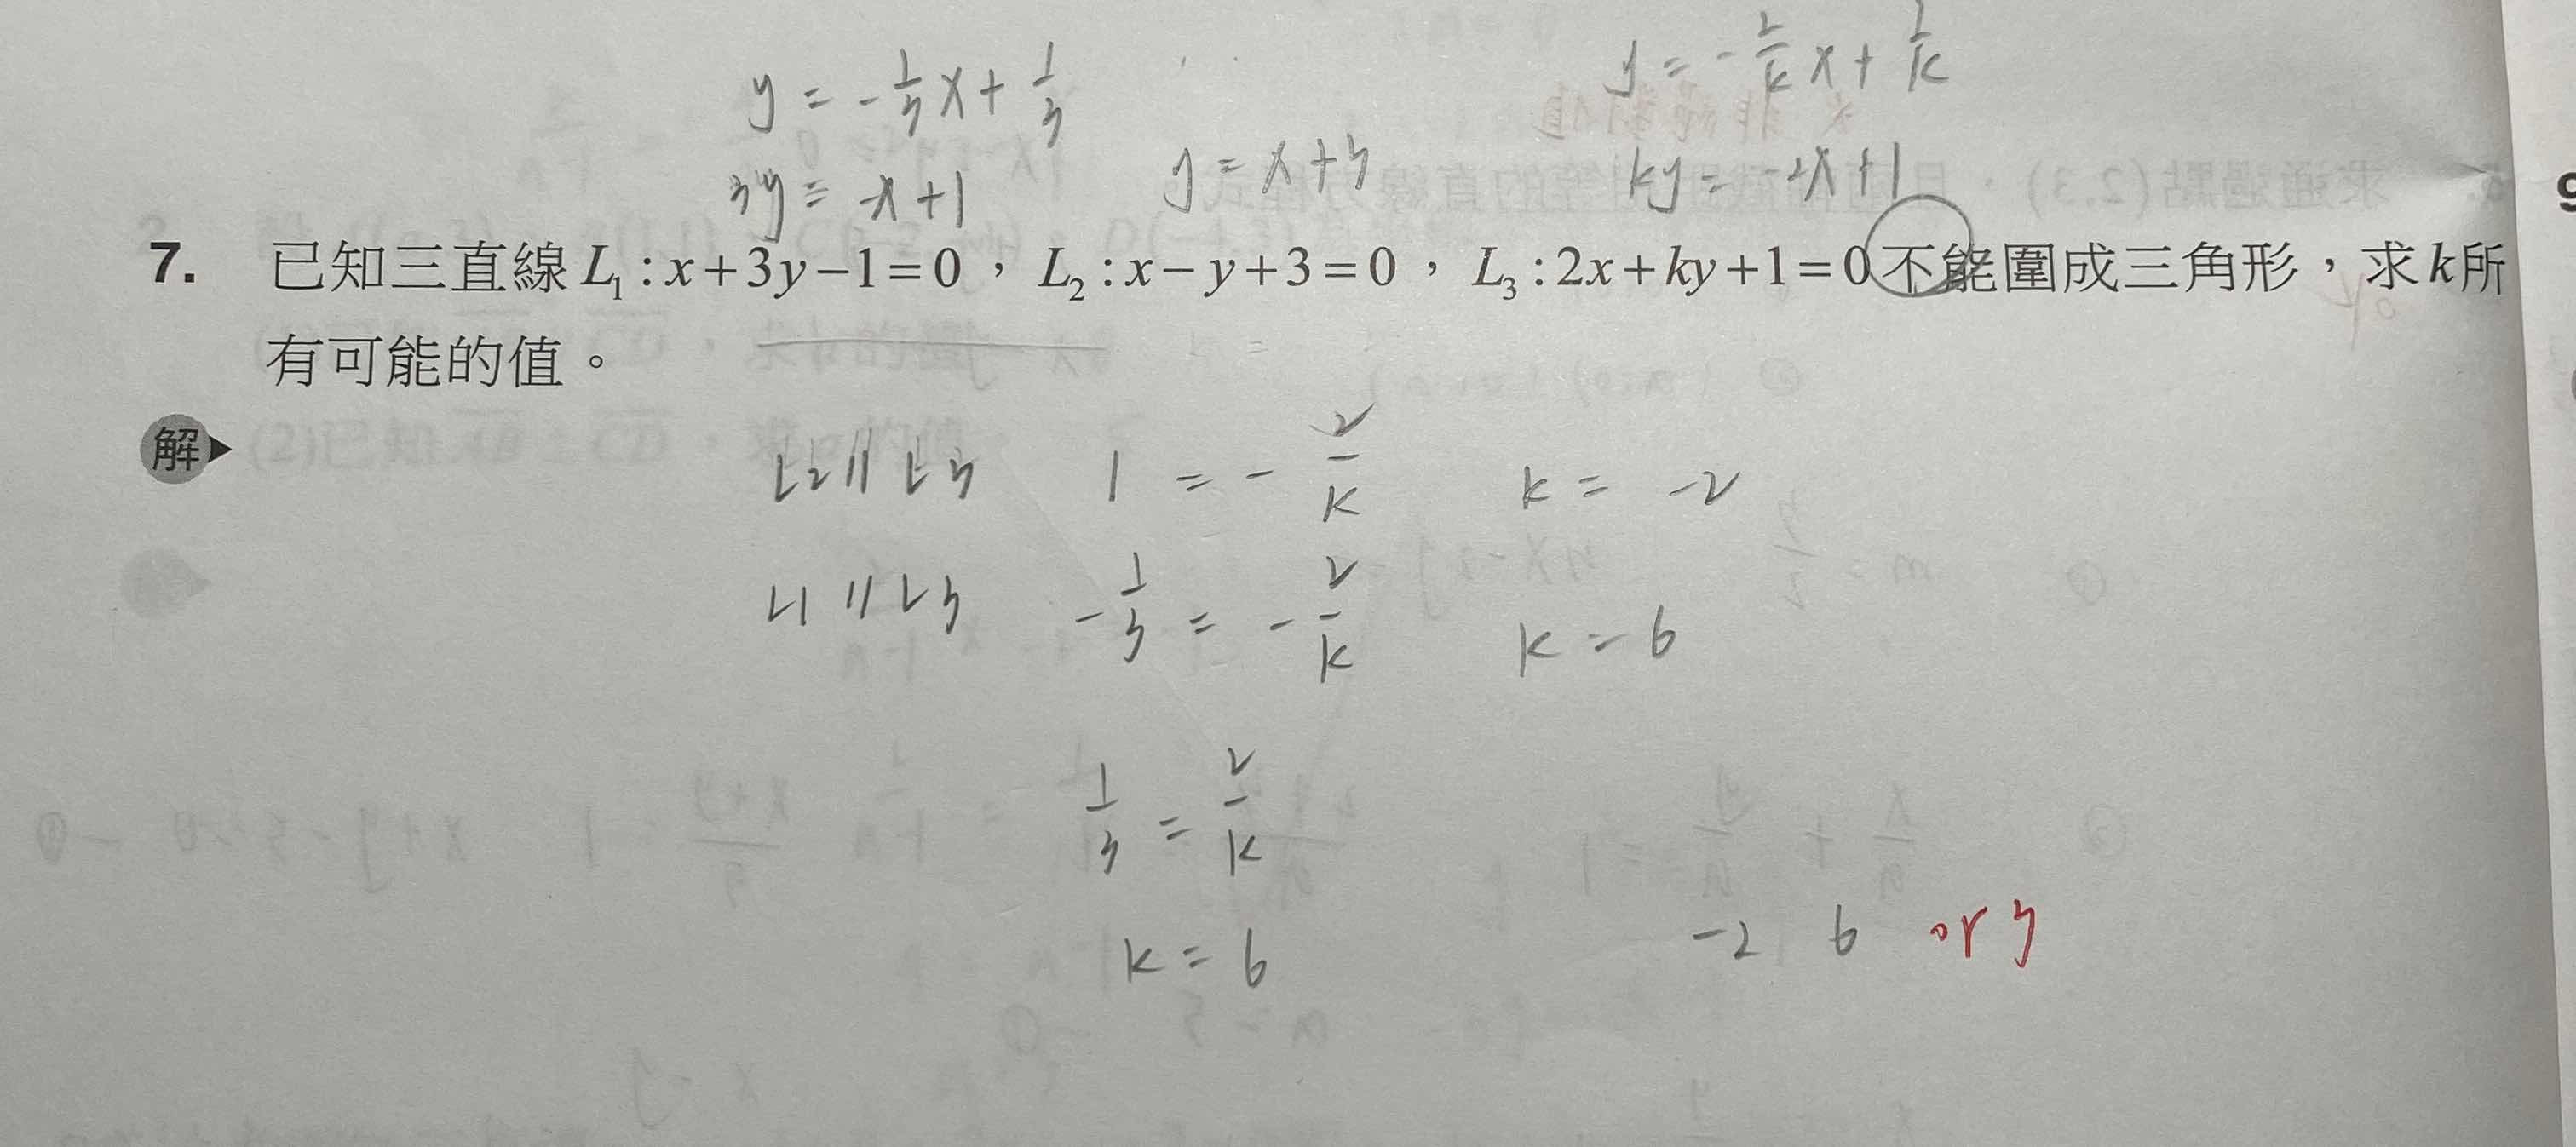 y = -1/3 x + 1/3
y = -2/k x + 1/k
3y = -x+1
y = x+3
ky = -2x+1
7. 已知三直線 L₁ : x+3y−1=0，L₂ : x−y+3=0，L₃ : 2x+ky+1=0 不能圍成三角形，求 k 所
有可能的值。
解
L2 // L3 1 = - 2/k k = -2
L1 // L3 - 1/3 = - 2/k k = 6
1/3 = 2/k
k = 6
-2 6 or 3